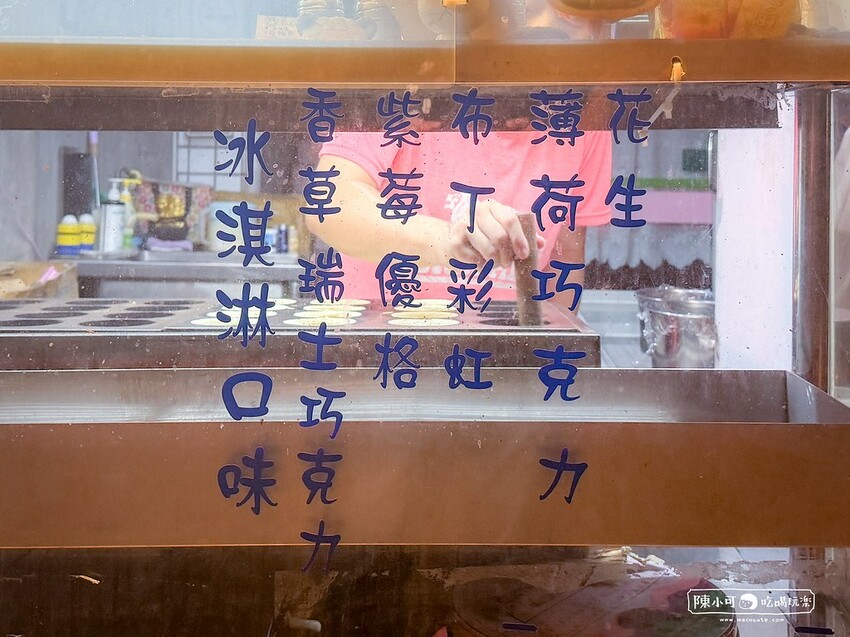 冰淇淋口味
香草瑞士巧克力
紫莓優格
布丁彩虹
薄荷巧克力
花生
陳小可 吃喝玩樂